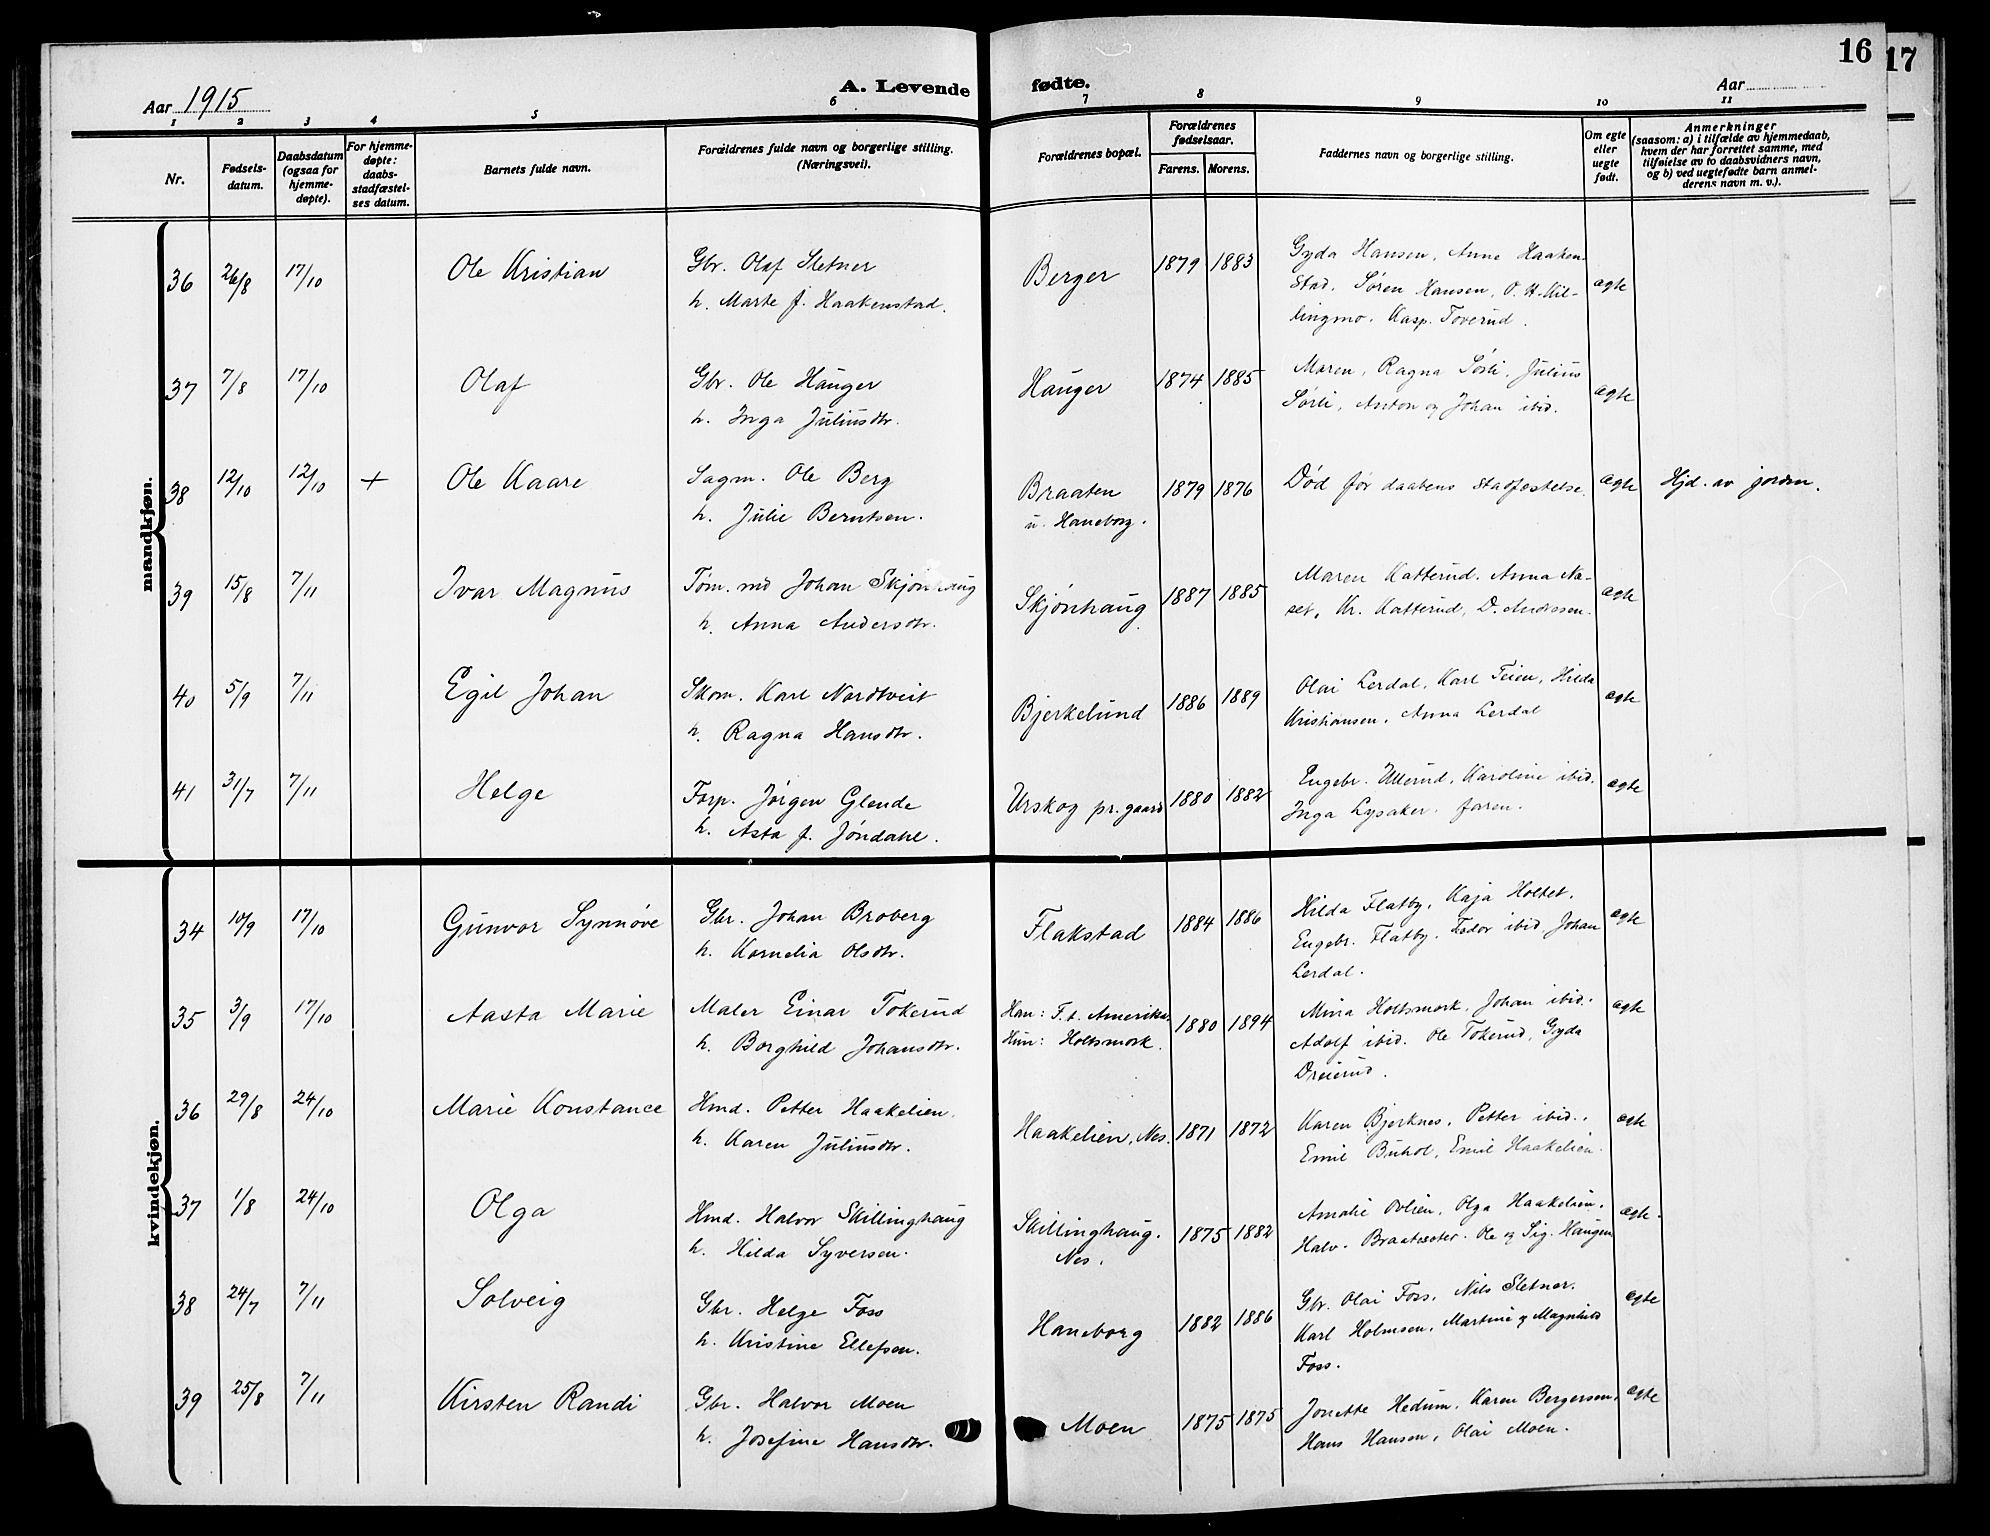 16
17
Aar 1915
A. Levende fødte.
Aar
1 2 3 4 5 6 7 8 9 10 11
Nr.
Fødsels-
datum.
Daabsdatum
(ogsaa for
hjemme-
døpte).
For hjemme-
døpte:
daabs-
stadfæstel-
ses datum.
Barnets fulde navn.
Forældrenes fulde navn og borgerlige stilling.
(Næringsvei).
Forældrenes bopæl.
Forældrenes
fødselsaar.
Farens. Morens.
Faddernes navn og borgerlige stilling.
Om egte
eller
uegte
født.
Anmerkninger
(saasom: a) i tilfælde av hjemmedaab,
hvem der har forrettet samme, med
tilføielse av to daabsvidners navn,
og b) ved uegtefødte barn anmel-
derens navn m. v.).
mandkjøn.
36 26/8 17/10 Ole Kristian
Gbr. Olaf Sletner
h. Marte f. Haakenstad.
Berger 1879 1883
Gyda Hansen, Anne Haaken
stad, Søren Hansen, O. H. Kil-
lingmo. Kasp. Toverud.
egte
37 7/8 17/10 Olaf
Gbr. Ole Hauger
h. Inga Juliusdtr.
Hauger 1874 1885
Maren, Ragna Sørli, Julius
Sørli, Anton og Johan ibid.
egte
38 12/10 12/10 + Ole Kaare
Sagm. Ole Berg
h. Julie Berntsen.
Braaten
u. Haneborg.
1879 1876
Død før daabens stadfæstelse.
egte
Hjd. av jordm.
39 15/8 7/11 Ivar Magnus
Tøm. md Johan Skjønhaug
h. Anna Andersdtr.
Skjønhaug 1887 1885
Maren Katterud, Anna Na-
set, Kr. Katterud, D. Andrssen.
egte
40 5/9 7/11 Egil Johan
Skom. Karl Nordtveit
h. Ragna Hansdtr.
Bjerkelund 1886 1889
Olai Lerdal, Karl Teien, Hilda
Kristiansen, Anna Lerdal
egte
41 31/7 7/11 Helge
Forp. Jørgen Glende
h. Asta f. Jøndahl.
Urskog pr.gaard 1880 1882
Engebr. Ullerud, Karoline ibid.
Inga Lysaker. faren.
egte
kvindekjøn.
34 10/9 17/10 Gunvor Synnøve
Gbr. Johan Broberg
h. Kornelia Olsdtr.
Flakstad 1884 1886
Hilda Flatby, Kaja Holtet,
Engebr. Flatby. Fedor ibid, Johan
Lerdal.
egte
35 3/9 17/10 Aasta Marie
Maler Einar Tokerud
h. Borghild Johansdtr.
Han: F.t. Amerika,
Hun: Holtsmork.
1880 1894
Mina Holtsmork, Johan ibid.
Adolf ibid. Ole Tokerud, Gyda
Dreierud.
egte
36 29/8 24/10 Marie Konstance
Hmd. Petter Haakelien.
h. Karen Juliusdtr.
Haakelien, Nes. 1871 1872
Karen Bjerknes, Petter ibid.,
Emil Buhol, Emil Haakelien.
egte
37 1/8 24/10 Olga
Hmd. Halvor Skillinghaug
h. Hilda Syversen.
Skillinghaug.
Nes.
1875 1882
Amalie Ovlien, Olga Haakelien,
Halv. Braatesæter. Ole og Sig. Haugen
egte.
38 24/7 7/11 Solveig
Gbr. Helge Foss
h. Kristine Ellefsen.
Haneborg 1882 1886
Gbr. Olai Foss, Nils Sletner.
Karl Holmsen, Martine og Magnhild
Foss.
egte
39 25/8 7/11 Kirsten Randi
Gbr. Halvor Moen
h. Josefine Hansdtr.
Moen 1875 1875
Jonette Hedum, Karen Bergersen,
Hans Hansen, Olai Moen.
egte